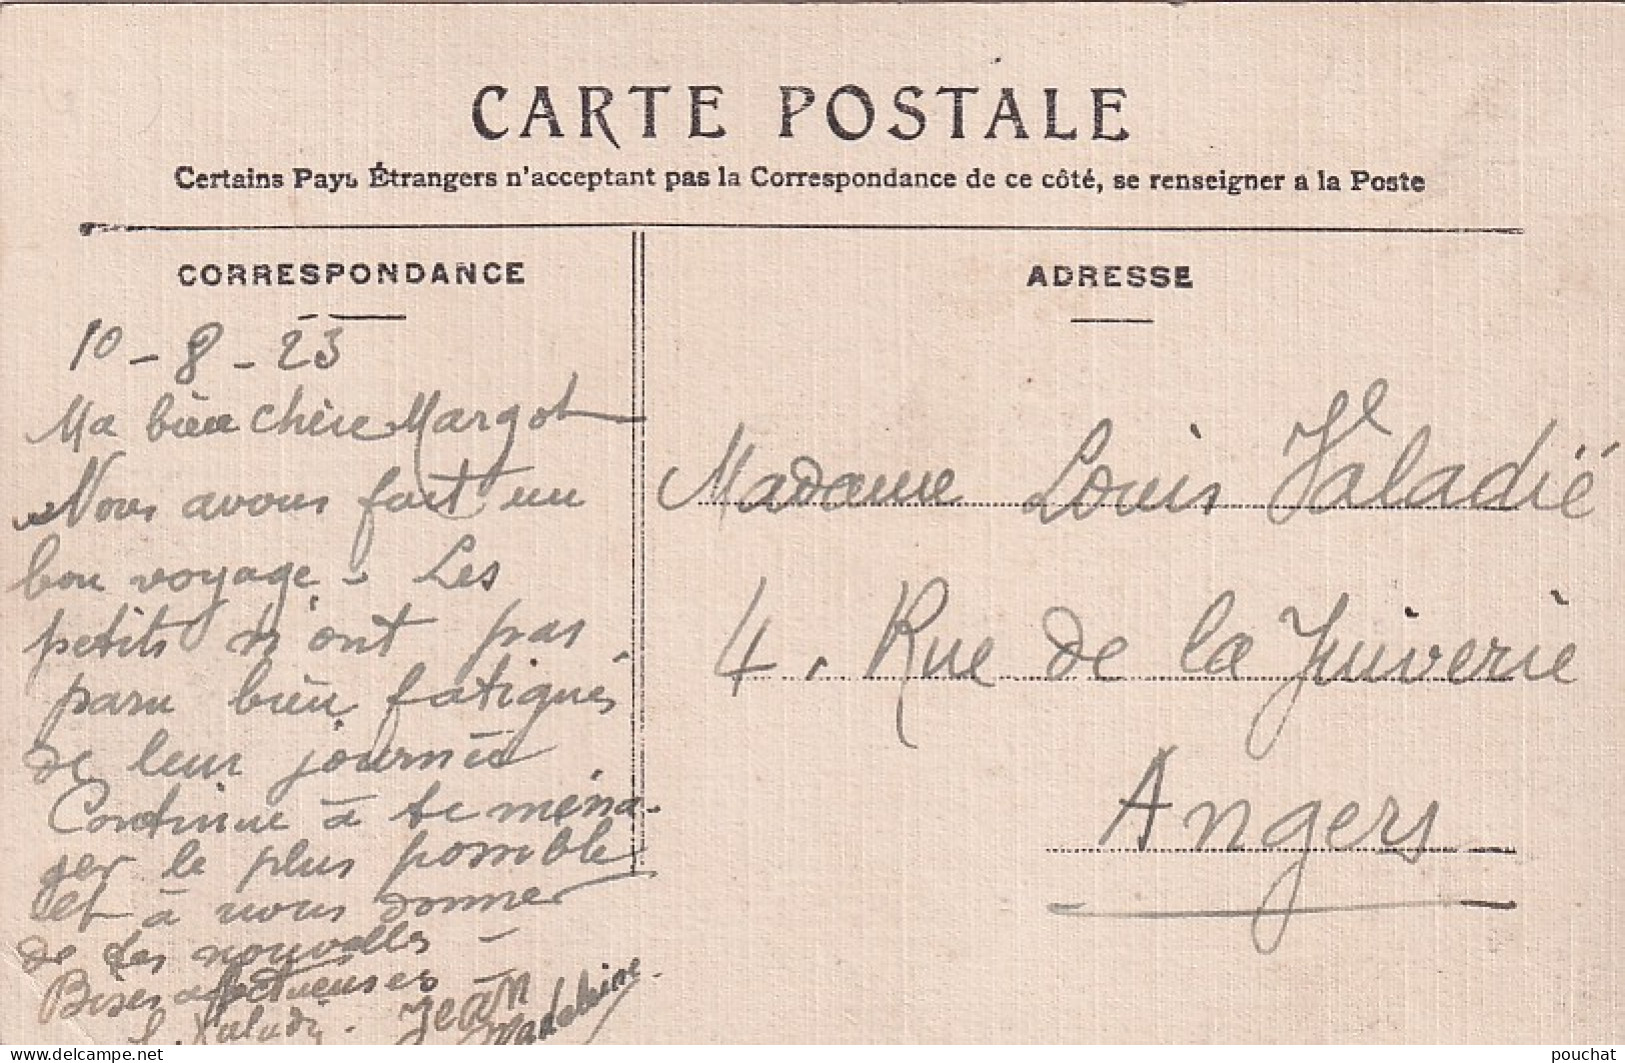 CARTE POSTALE
Certains Pays Étrangers n'acceptant pas la Correspondance de ce côté, se renseigner a la Poste
CORRESPONDANCE
10 - 8 - 23
Ma bien chère Margot
Nous avons fait un
bon voyage - Les
petits n'ont pas
paru bien fatigués
de leur journée
Continue à te ména-
ger le plus possible
et à nous donner
de tes nouvelles -
Bises affectueuses
Valadié. Jean
Madeleine.
ADRESSE
Madame Louis Valadié
4, Rue de la Juiverie
Angers
delcampe.net
pouchat